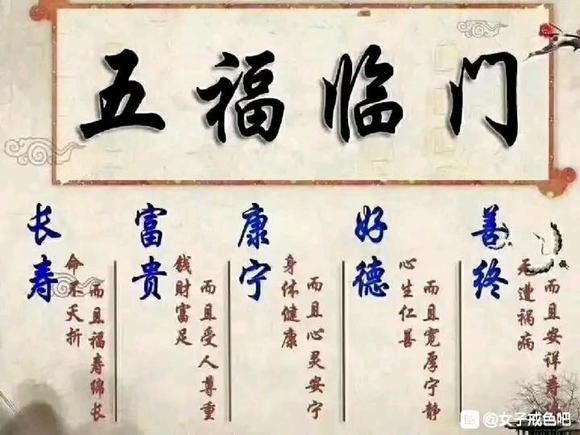 五福临门
长寿
命不夭折
而且福寿绵长
富贵
钱财富足
而且受人尊重
康宁
身体健康
而且心灵安宁
好德
心生仁善
而且宽厚宁静
善终
无遭祸病
而且安详寿
@女子戒色吧